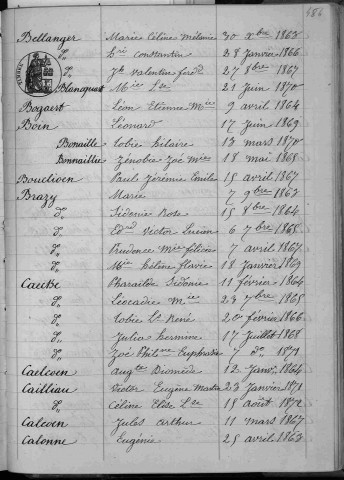 486
Bellanger Marie Céline Mélanie 30 xbre 1863
do Hri Constantin 28 Janvier 1866
do Jh Valentin ferdd 27 8bre 1867
Blanquart Mie Lse 21 Juin 1870
Bogaert Léon Etienne Mie 9 avril 1864
Boin Léonard 17 Juin 1869
Bonaille Tobie hilaire 13 mars 1870
Bonnaillie Zénobie Zoé Mie 18 mai 1865
Bouclioen Paul Jérémie Emile 15 avril 1867
Brazy Marie 7 9bre 1863
do Sidonie Rose 15 8bre 1864
do Edond Victor Lucien 6 7bre 1865
do Prudence Mie félicie 7 avril 1867
do Mie hélène flavie 18 Janvier 1869
Caetse Pharaïlde Sidonie 11 février 1864
do Léocadie Mie 23 7bre 1865
do Tobie Ls René 20 février 1866
do Julie hermine 17 Juillet 1868
do Zoé Philne Euphrasie 7 do 1871
Caelcoen Augte Dioméde 12 Janv. 1864
Cailliau Victor Eugène Martin 23 Janvier 1871
do Céline Elise Lse 15 août 1872
Calcoen Jules Arthur 11 mars 1867
Calonne Eugénie 25 avril 1863